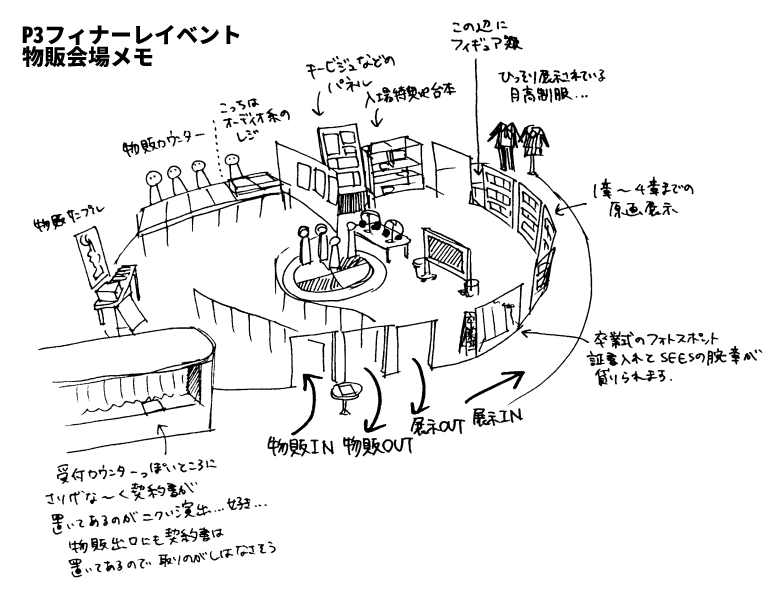 P3フィナーレイベント
物販会場メモ
この辺に
フィギュア類
キービジュなどの
パネル
入場特典や台本
ひっそり展示されている
月高制服...
こっちは
オーディオ系の
レジ
物販カウンター
物販サンプル
1章〜4章までの
原画展示
卒業式のフォトスポット
証書入れとSEESの腕章が
借りられます.
物販IN
物販OUT
展示OUT
展示IN
受付カウンターっぽいところに
さりげな〜く契約書が
置いてあるのがニクい演出...好き...
物販出口にも契約書は
置いてあるので 取りのがしはなさそう